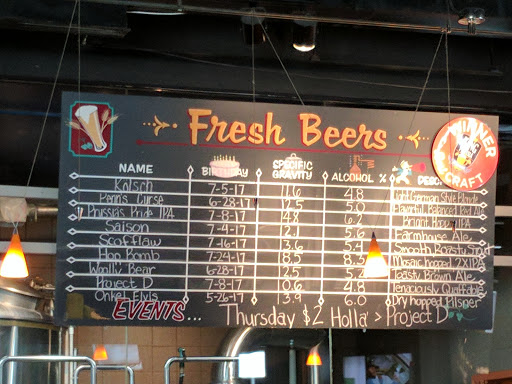 Fresh Beers
WINNER
CRAFT
NAME BIRTHDAY SPECIFIC GRAVITY ALCOHOL %
Kolsch 7-5-17 11.6 4.8
Penn's Curse 6-28-17 12.5 5.0
Prussia's Pride IPA 7-8-17 14.8 6.2
Saison 7-4-17 12.1 5.6 Farmhouse Ale
Scofflaw 7-16-17 13.6 5.4 Smooth Roasty
Hop Bomb 7-24-17 18.5 8.3 Mosaic hopped
Woolly Bear 6-28-17 12.5 5.2 Toasty Brown Ale
Project D 7-8-17 10.6 4.8 Tenaciously Quaffable
Onkel Elvis 5-26-17 13.9 6.0 Dry hopped Pilsner
EVENTS... Thursday $2 Holla' > Project D